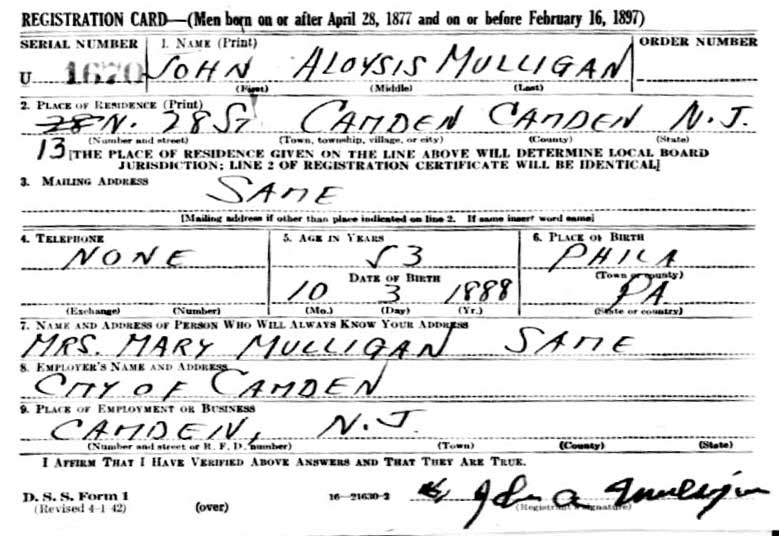 REGISTRATION CARD—(Men born on or after April 28, 1877 and on or before February 16, 1897)
SERIAL NUMBER 1. NAME (Print) ORDER NUMBER
U 1670 JOHN ALOYSIS MULLIGAN
(First) (Middle) (Last)
2. PLACE OF RESIDENCE (Print)
28 N. 28 ST CAMDEN CAMDEN N.J.
(Number and street) (Town, township, village, or city) (County) (State)
13 [THE PLACE OF RESIDENCE GIVEN ON THE LINE ABOVE WILL DETERMINE LOCAL BOARD
JURISDICTION; LINE 2 OF REGISTRATION CERTIFICATE WILL BE IDENTICAL]
3. MAILING ADDRESS
SAME
[Mailing address if other than place indicated on line 2. If same insert word same]
4. TELEPHONE 5. AGE IN YEARS 6. PLACE OF BIRTH
NONE 53 PHILA
(Town or county)
DATE OF BIRTH
10 3 1888 PA
(Exchange) (Number) (Mo.) (Day) (Yr.) (State or country)
7. NAME AND ADDRESS OF PERSON WHO WILL ALWAYS KNOW YOUR ADDRESS
MRS. MARY MULLIGAN SAME
8. EMPLOYER'S NAME AND ADDRESS
CITY OF CAMDEN
9. PLACE OF EMPLOYMENT OR BUSINESS
CAMDEN, N.J.
(Number and street or R. F. D. number) (Town) (County) (State)
I AFFIRM THAT I HAVE VERIFIED ABOVE ANSWERS AND THAT THEY ARE TRUE.
D. S. S. Form 1
(Revised 4-1-42) (over) 16—21630-2 John A Mulligan
(Registrant's signature)